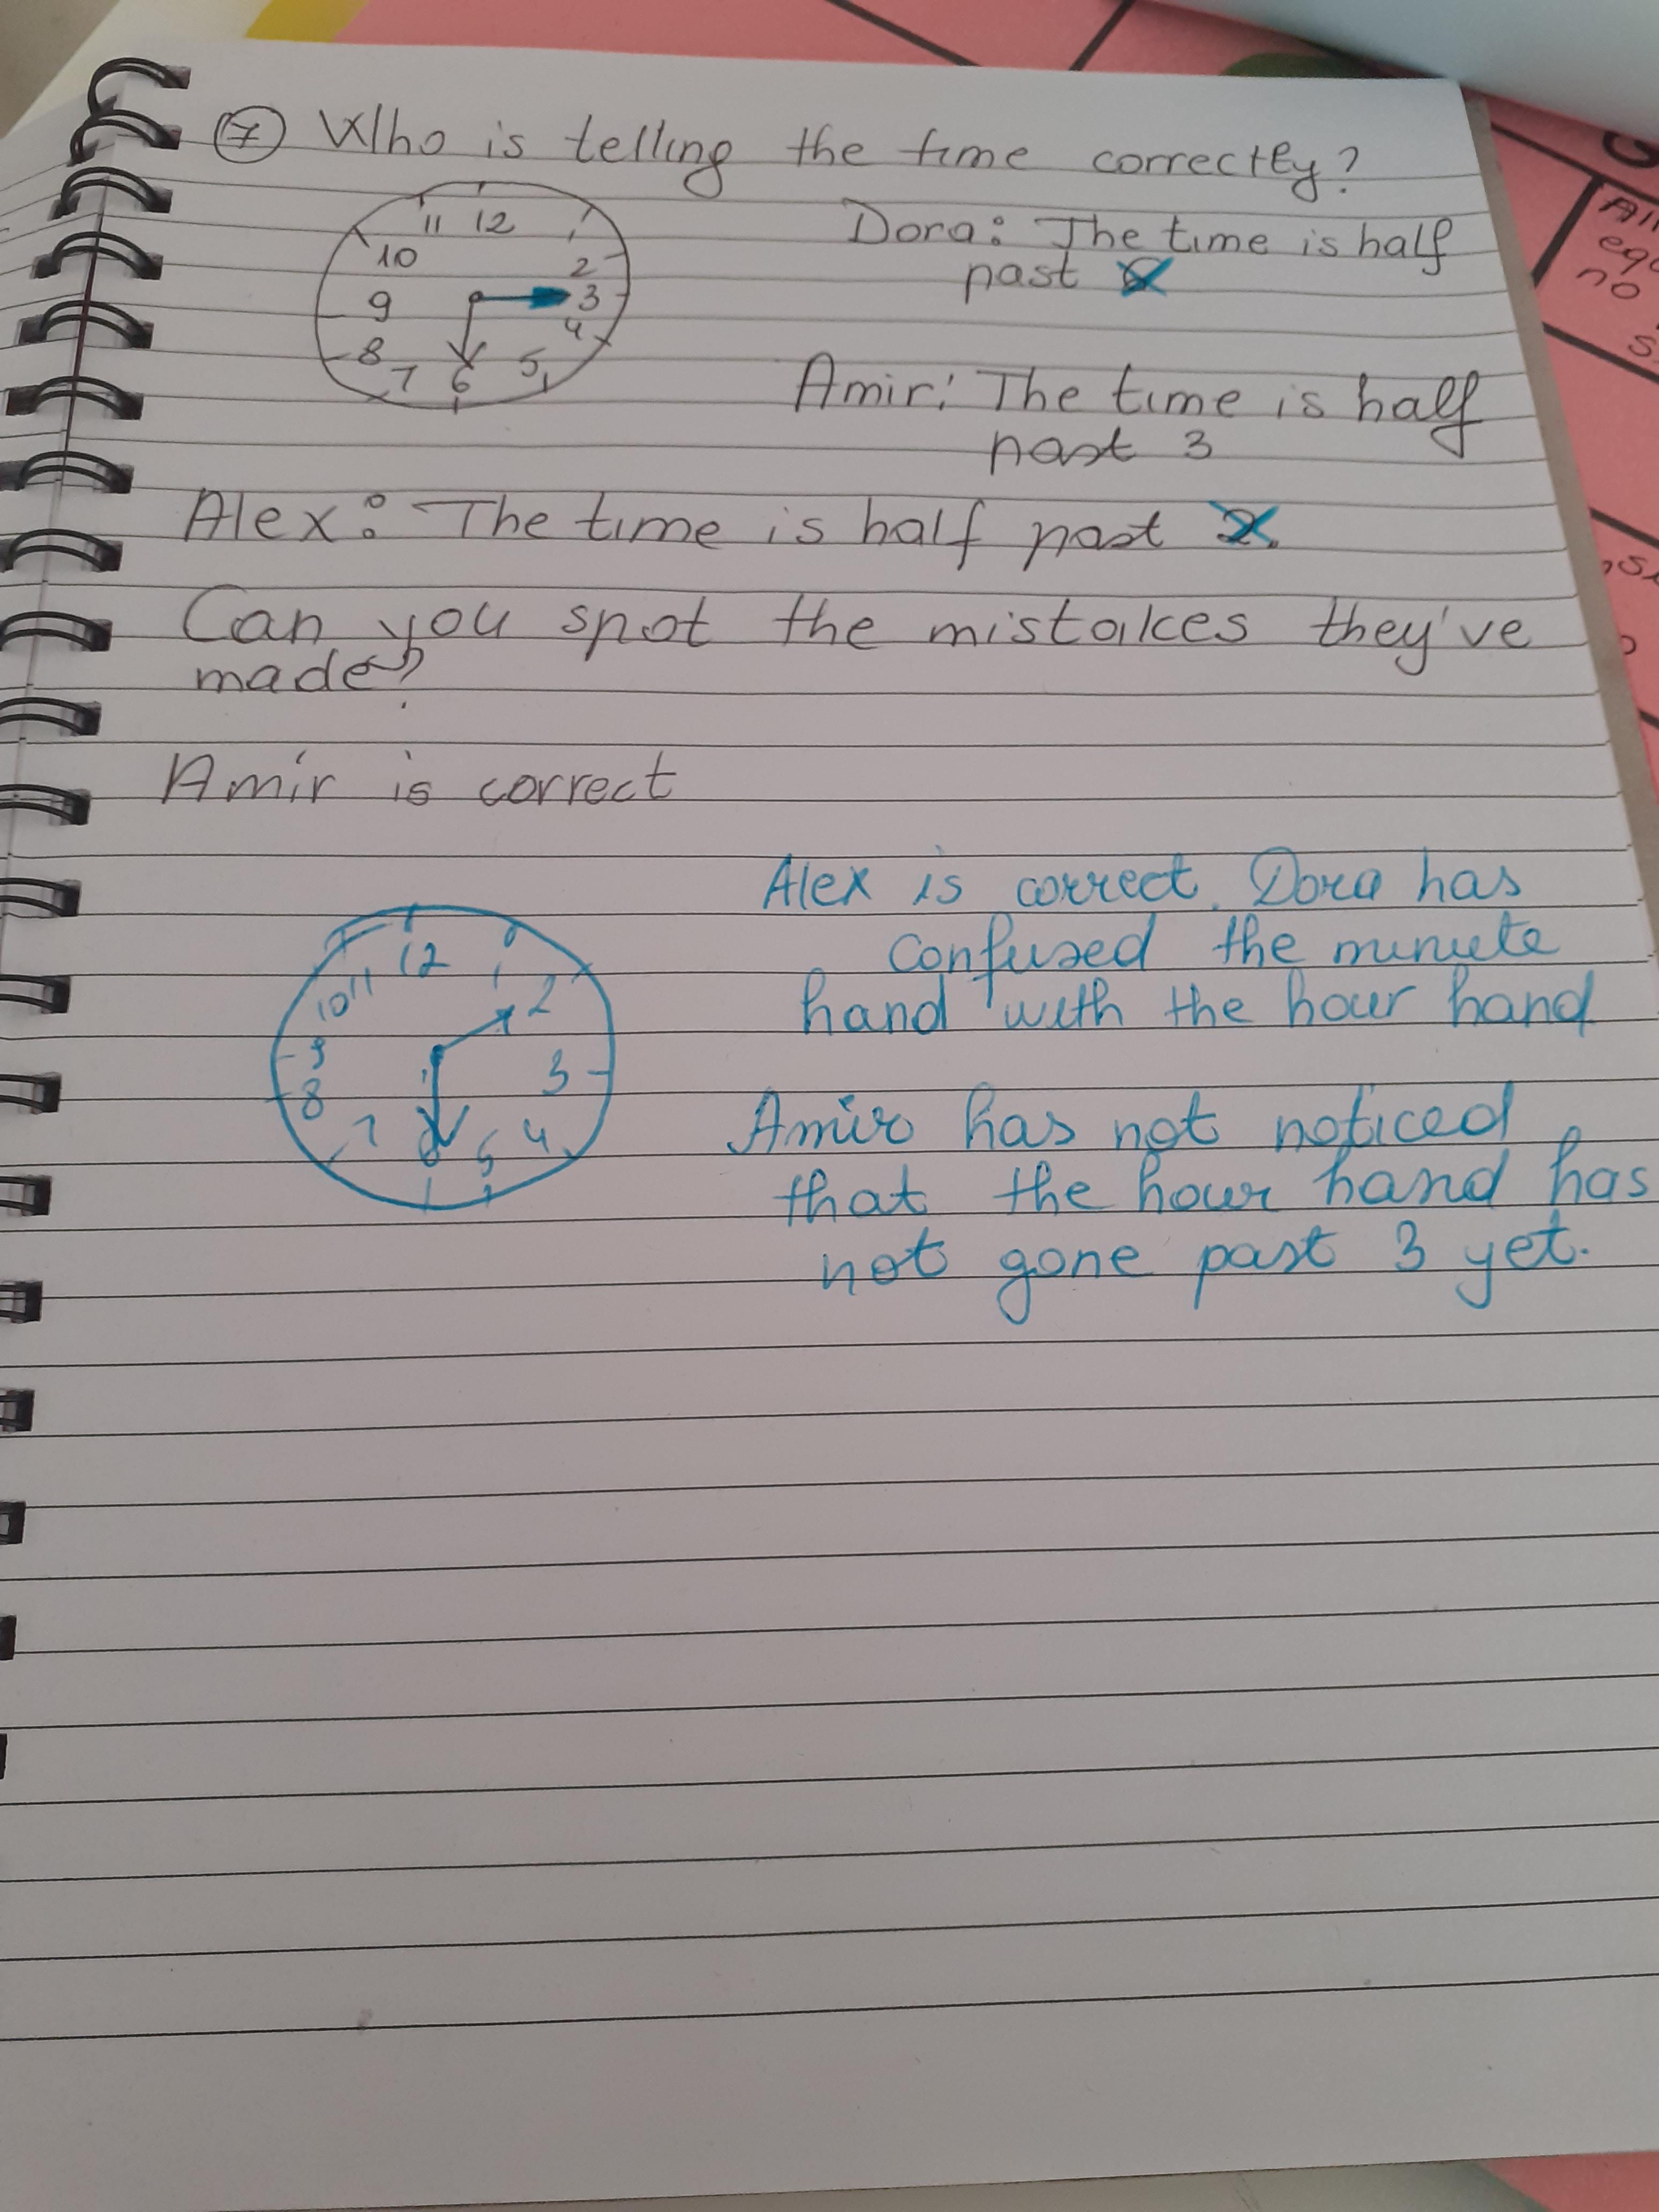 7 Who is telling the time correctly?
11 12 1
10 2
9 3
8 4
7 6 5
Dora: The time is half
past
Amir: The time is half
past 3
Alex: The time is half past 2.
Can you spot the mistakes they've
made?
Amir is correct
Alex is correct. Dora has
confused the minute
hand with the hour hand
12 1
10 11 2
9 3
8 4
7 6 5
Amir has not noticed
that the hour hand has
not gone past 3 yet.
All
no